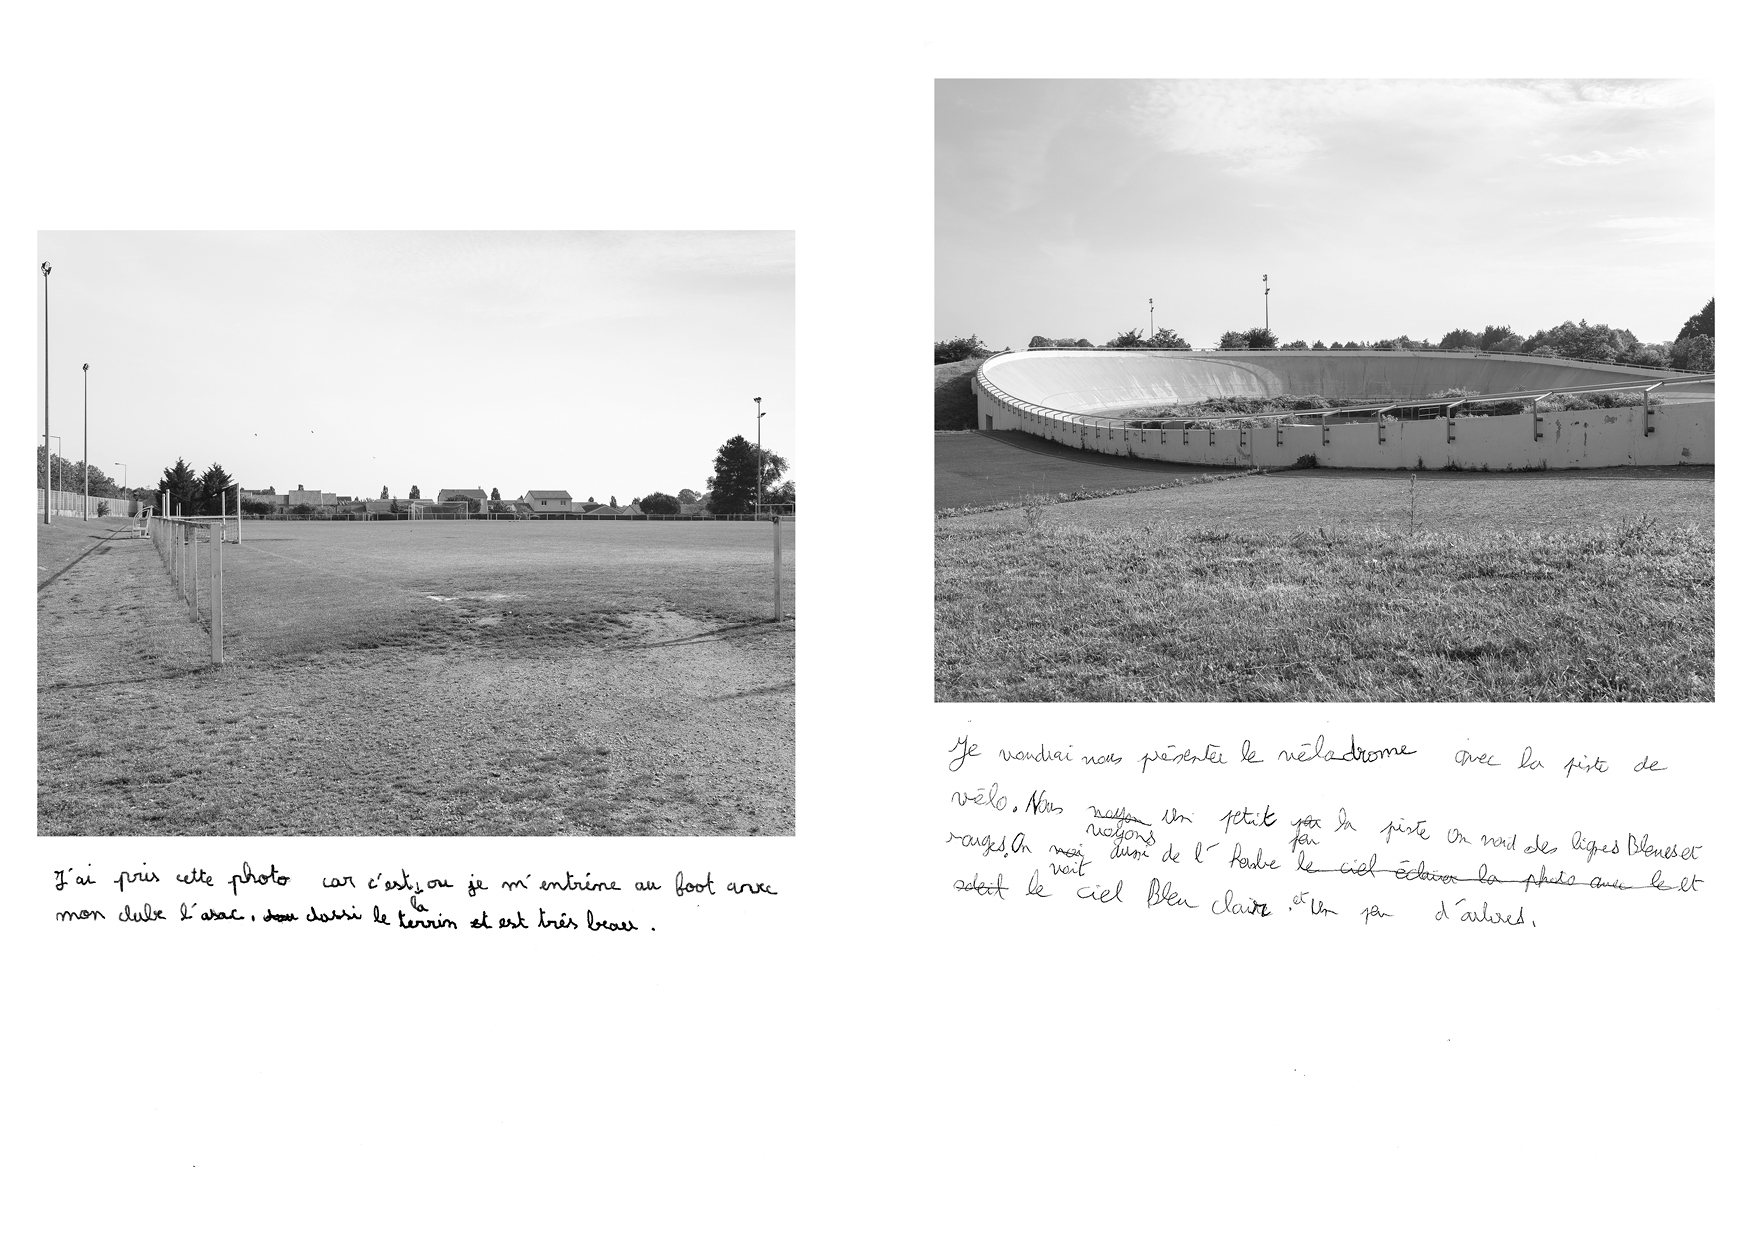 J'ai pris cette photo car c'est là ou je m'entréne au foot avec
mon clube l'asac. aussi le terrin est trés beau.
Je voudrai vous présentée le véladrome avec la piste de
vélo. Nous voyons un petit peu la piste on void des lignes Bleues et
rouges. On voit aussi de l'herbe le ciel éclaire la photo avec le et
soleit le ciel Bleu claire. et un peu d'arbres.